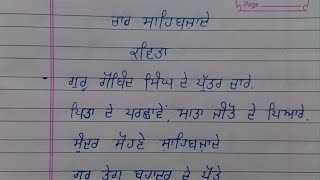 Page
ਚਾਰ ਸਾਹਿਬਜ਼ਾਦੇ
ਕਵਿਤਾ
- ਗੁਰੂ ਗੋਬਿੰਦ ਸਿੰਘ ਦੇ ਪੁੱਤਰ ਚਾਰੇ,
ਪਿਤਾ ਦੇ ਪਰਛਾਵੇਂ, ਮਾਤਾ ਜੀਤੋ ਦੇ ਪਿਆਰੇ,
ਸੁੰਦਰ ਸੋਹਣੇ ਸਾਹਿਬਜ਼ਾਦੇ
ਗੁਰੂ ਤੇਗ ਬਹਾਦਰ ਦੇ ਪੋਤੇ